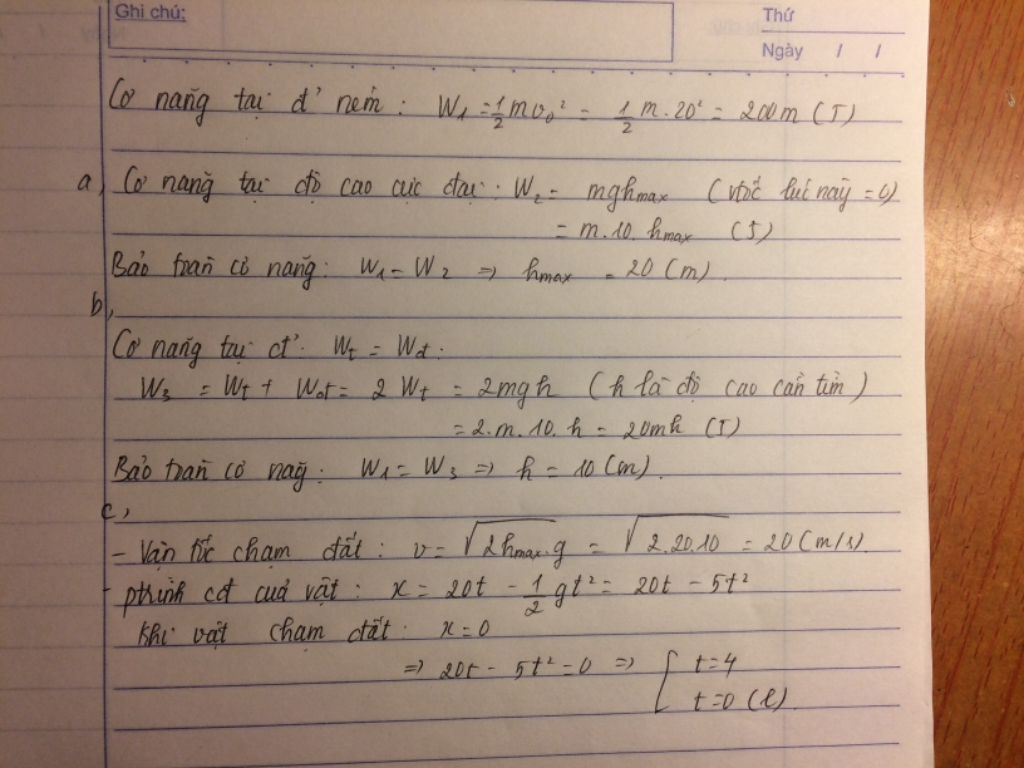 Ghi chú:
Thứ
Ngày / /
Cơ năng tại đ' ném : W₁ = 1/2 mv₀² = 1/2 m.20² = 200m (J)
a, Cơ năng tại độ cao cực đại : W₂ = mghmax (vtốc lúc này = 0)
= m.10.hmax (J)
Bảo toàn cơ năng : W₁ = W₂ => hmax = 20 (m).
b,
Cơ năng tại đ' : Wt = Wđ :
W₃ = Wt + Wđ = 2 Wt = 2mgh (h là độ cao cần tìm)
= 2.m.10.h = 20mh (J)
Bảo toàn cơ năg : W₁ = W₃ => h = 10 (m).
c,
- Vận tốc chạm đất : v = √2hmax.g = √2.20.10 = 20 (m/s).
- ptrình cđ của vật : x = 20t - 1/2 gt² = 20t - 5t²
Khi vật chạm đất : x = 0
=> 20t - 5t² = 0 => [ t = 4
t = 0 (l).